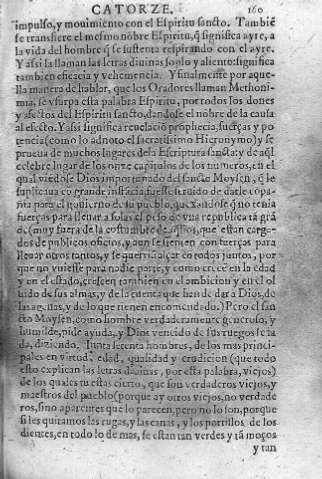 CATORZE. 160
impulso, y mouimiento con el Espiritu sancto. Tambiẽ
se transfiere el mesmo nõbre Espiritu, q̃ significa ayre, a
la vida del hombre q̃ se sustenta respirando con el ayre.
Y assi la llaman las letras diuinas soplo y aliento: significa
tambien eficacia y vehemencia. Y finalmente por aque-
lla manera de hablar, que los Oradores llaman Methoni-
mia, se vsurpa esta palabra Espiritu, por todos los dones
y afectos del Espiritu sancto, dandose el nõbre de la causa
al efecto. Y assi significa reuelaciõ prophecia, fuerças y po-
tencia (como lo adnoto el sacratissimo Hieronymo) y se
prueua de muchos lugares de la Escriptura sancta: y de aq̃l
celebre lugar de los onze capitulos de los numeros, en el
qual viẽdose Dios importunado del sancto Moysen, q̃ le
suplicaua cõ grande instãcia fuesse seruido de darle cõpa-
ñia para el gouierno de su pueblo, quexandose q̃ no tenia
fuerças para lleuar a solas el peso de vna republica tã grã
de (muy fuera de la costumbre de aq̃llos, que estan carga-
dos de publicos oficios, y aun se sienten con fuerças para
lleuar otros tantos, y se querriã alçar cõ todos juntos, por
que no vuiesse para nadie parte, y como crecẽ en la edad
y en el estado, crescen tambien en el ambicion y en el ol
uido de sus almas, y de la cuenta que han de dar a Dios, de
las agenas, y de lo que tienen encomendado.) Pero el san
cto Moysen, como hombre verdaderamente generoso, y
humilde, pide ayuda, y Dios vencido de sus ruegos se la
da, diziendo. Junta setenta hombres, de los mas princi-
pales en virtud, edad, qualidad y erudicion (que todo
esto explican las letras diuinas, por esta palabra, viejos)
de los quales tu estas cierto, que son verdaderos viejos, y
maestros del pueblo (porque ay otros viejos, no verdade
ros, sino aparentes que lo parecen, pero no lo son, porque
si les quitamos las rugas, y las canas, y los portillos, de los
dientes, en todo lo de mas, se estan tan verdes y tã moços
y tan